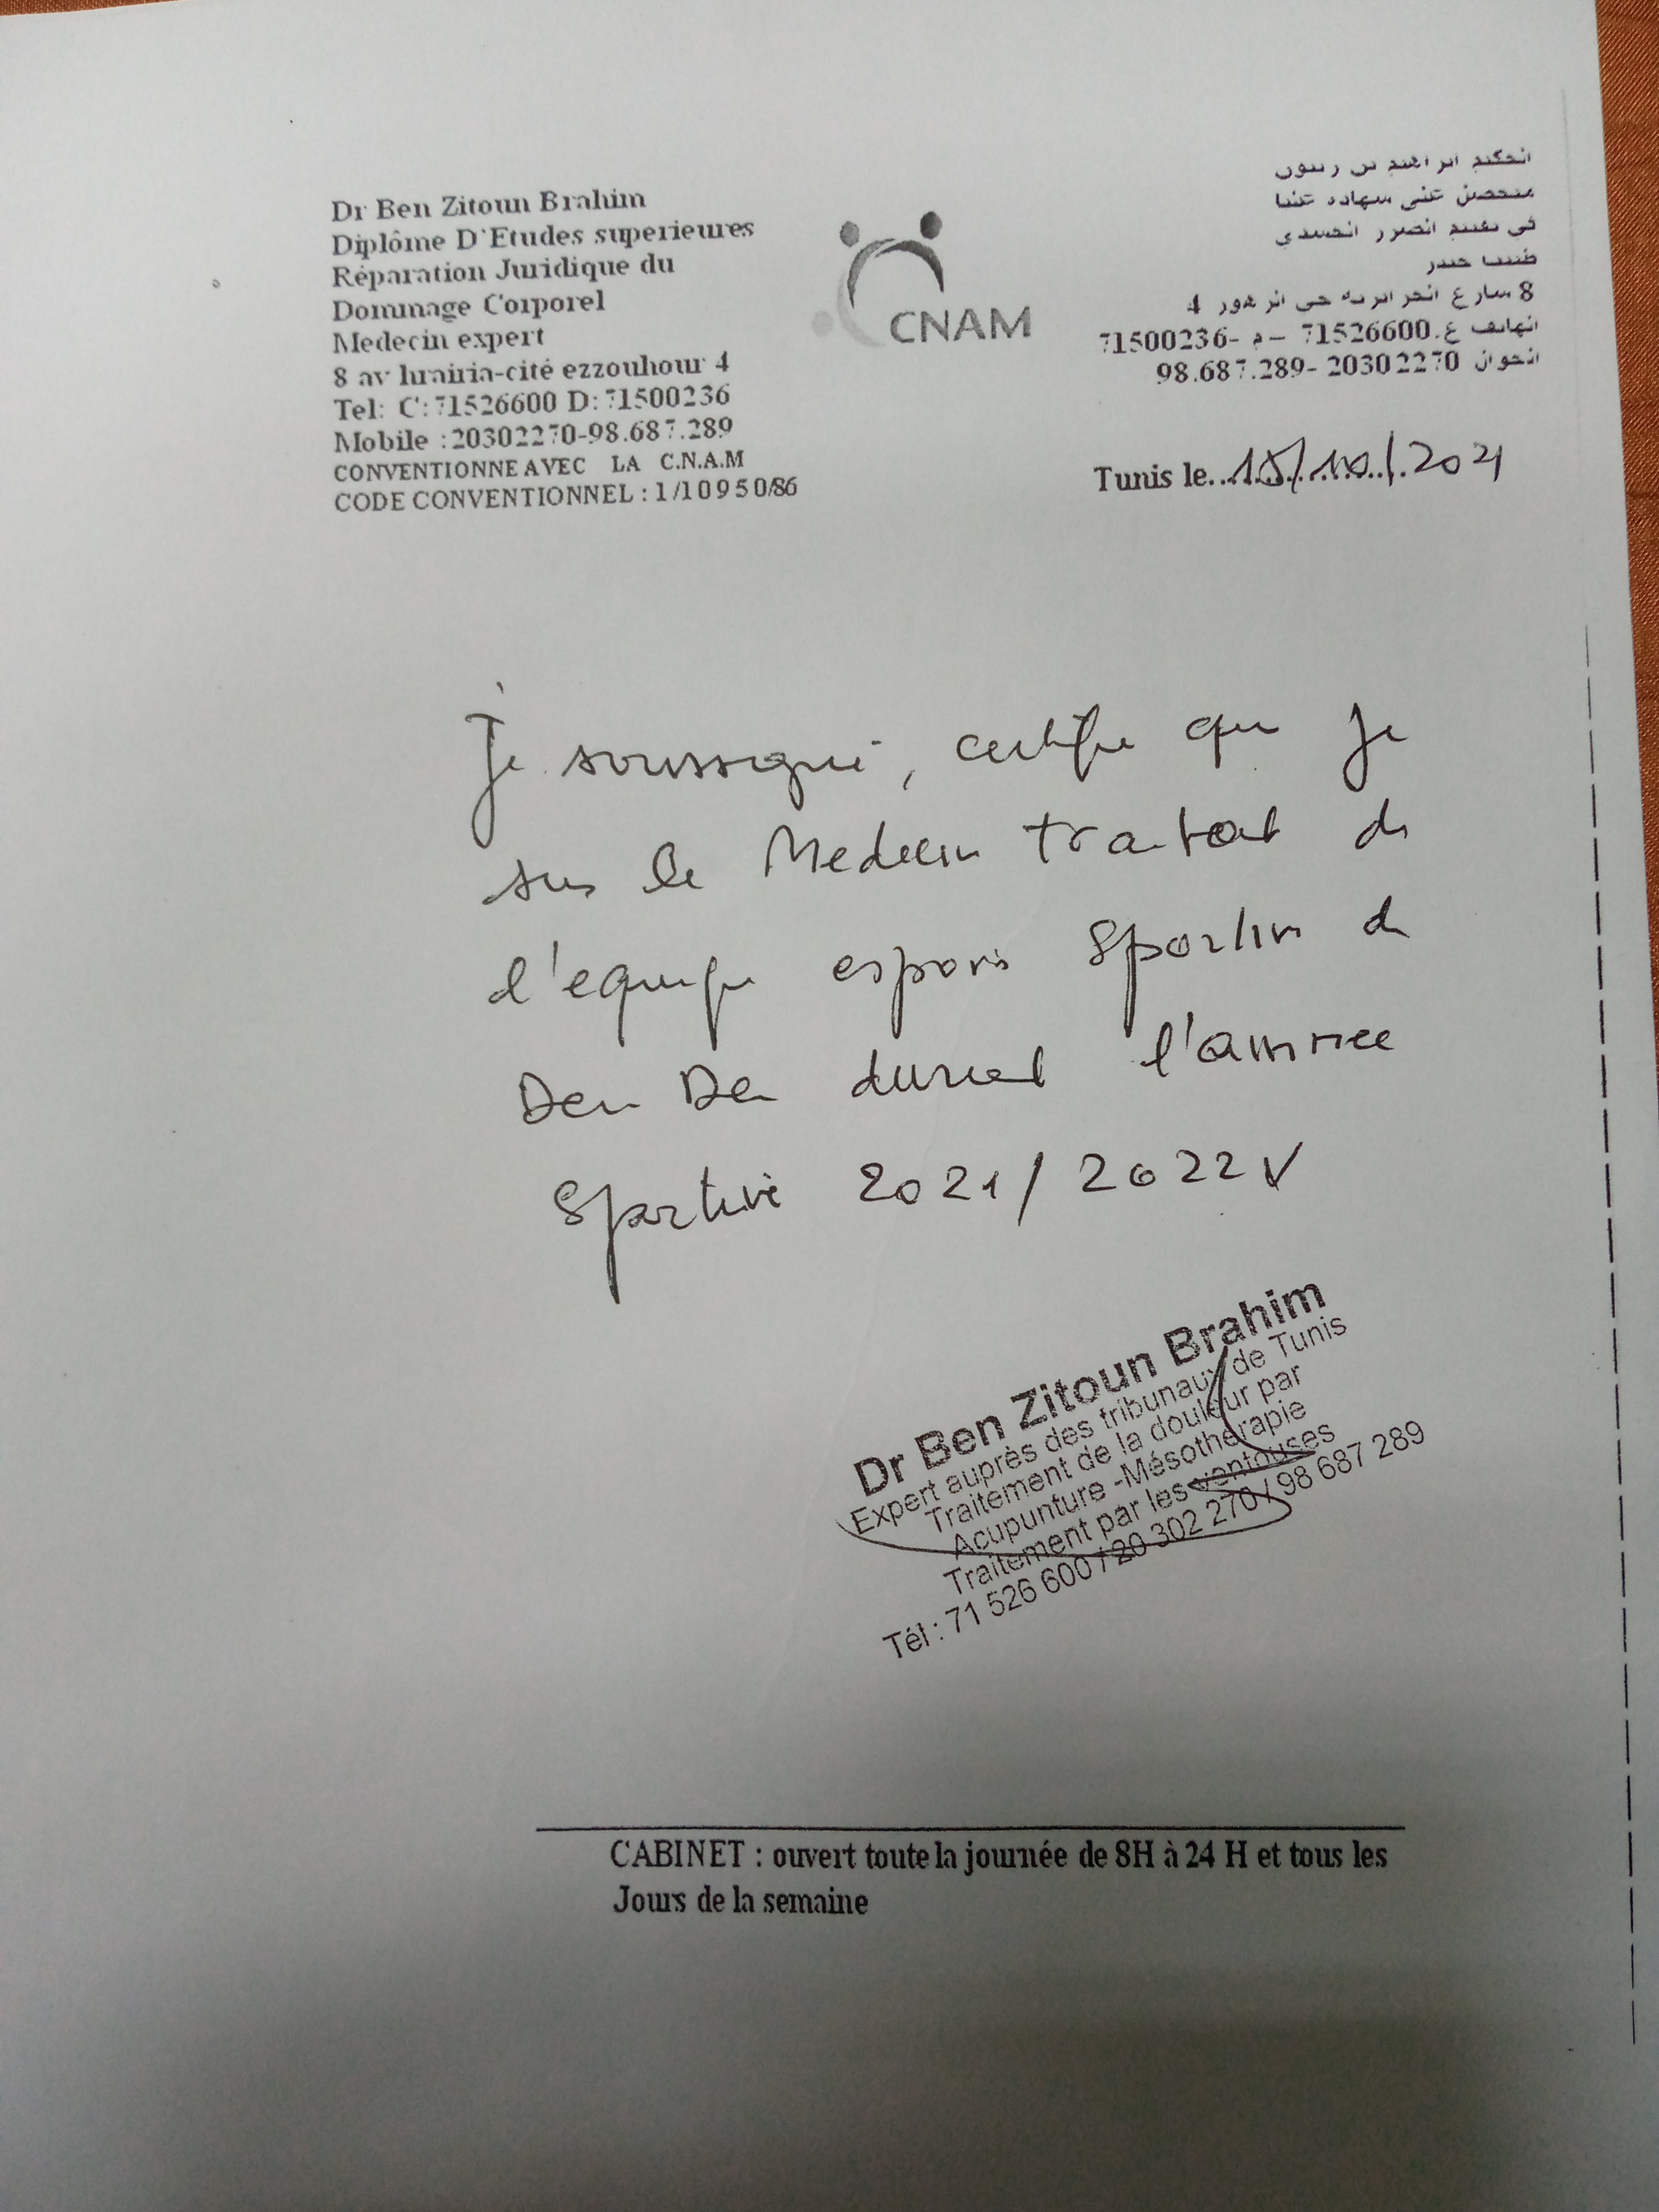 Dr Ben Zitoun Brahim
Diplôme D'Etudes superieures
Réparation Juridique du
Dommage Corporel
Medecin expert
8 av luairia-cité ezzouhour 4
Tel: C:71526600 D:71500236
Mobile :20302270-98.687.289
CONVENTIONNE AVEC LA C.N.A.M
CODE CONVENTIONNEL : 1/10950/86
CNAM
الحكيم ابراهيم بن زيتون
متحصل على شهادة عليا
في تقييم الضرر الجسدي
طبيب خبير
8 شارع الجزائرية حي الزهور 4
الهاتف ع.71526600 – م -71500236
الجوال 20302270 -98.687.289
Tunis le 15/10/2021
Je soussigné, certifie que je
suis le Medecin traitant de
l'equipe espoir Sportive de
Den Den durant l'annee
Sportive 2021/2022
Dr Ben Zitoun Brahim
Expert auprès des tribunaux de Tunis
Traitement de la douleur par
Acupunture -Mésothérapie
Traitement par les ventouses
Tél : 71 526 600 / 20 302 270 / 98 687 289
CABINET : ouvert toute la journée de 8H à 24 H et tous les
Jours de la semaine